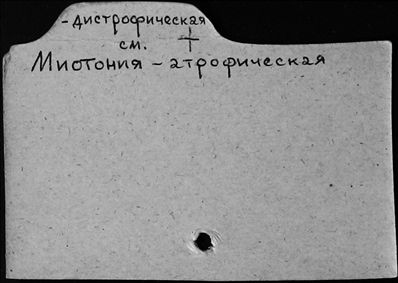 - дистрофическая
см. +
Миотония - атрофическая